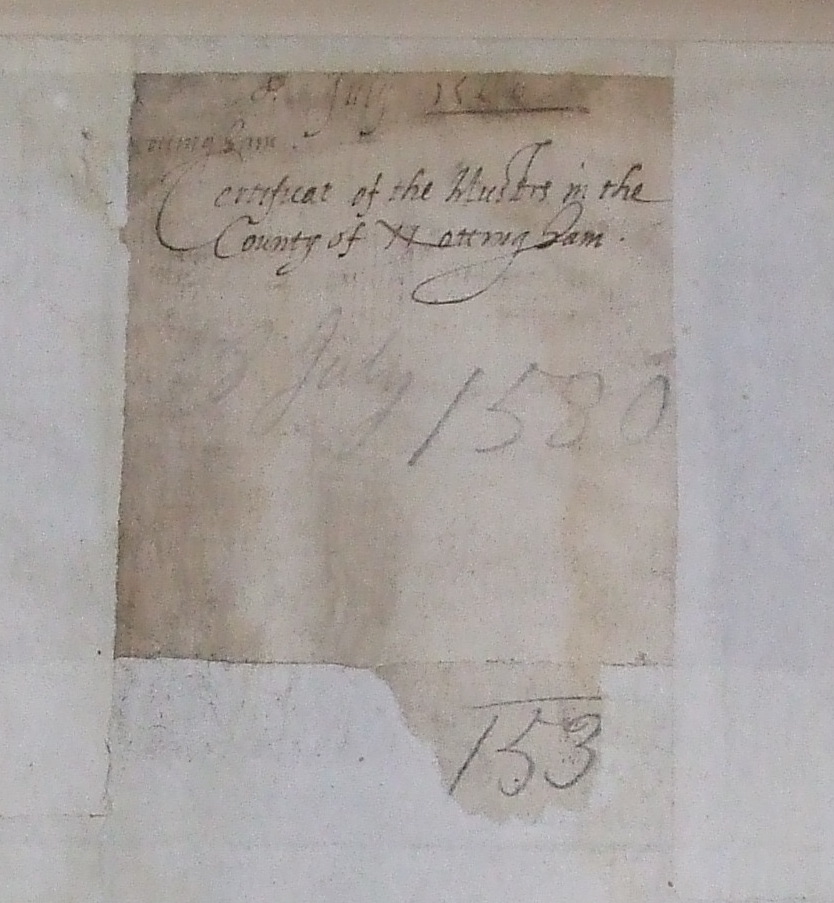 8 July 1580
ottingham.
Certificat of the Musters in the
County of Nottingham.
8 July 1580
153